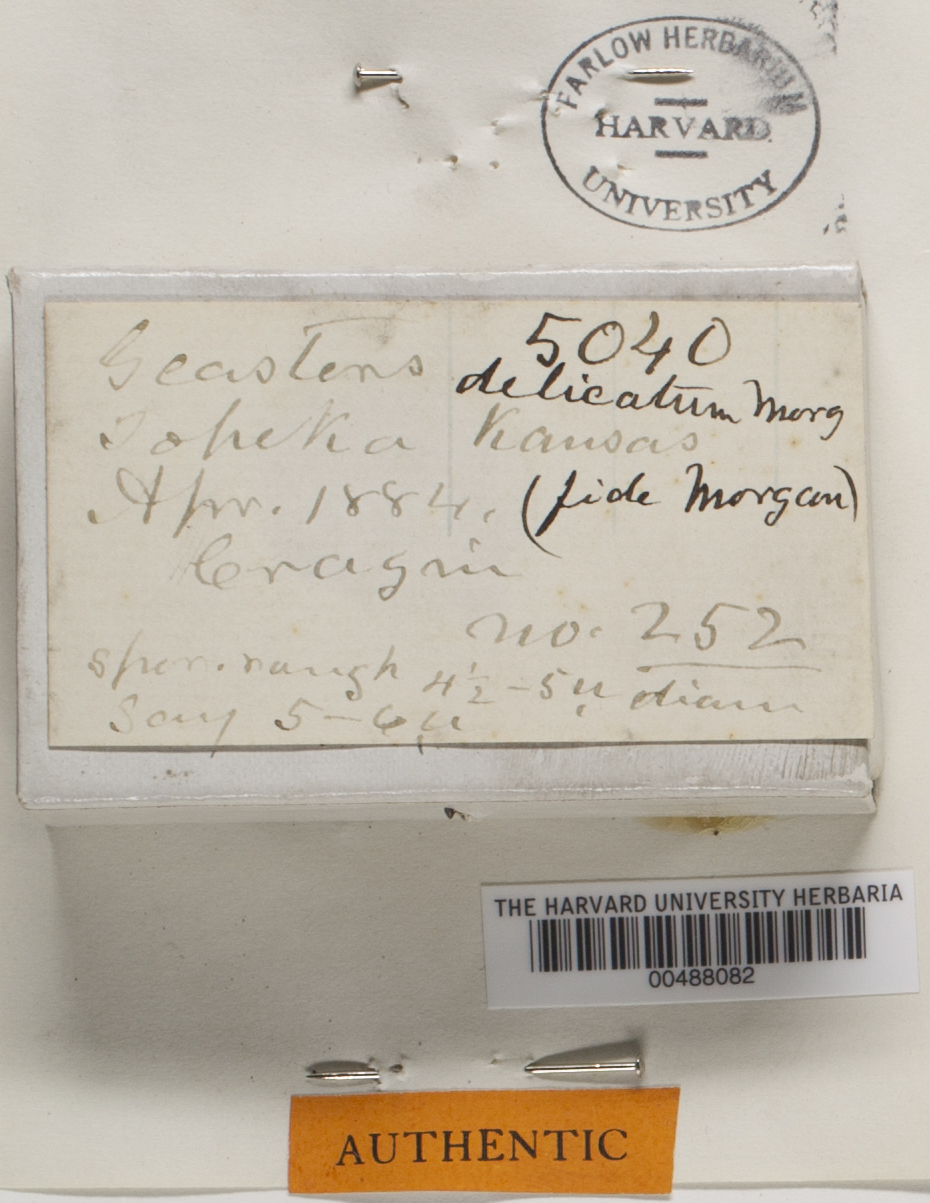 FARLOW HERBARIUM
HARVARD
UNIVERSITY
5040
Geasters delicatum Morg
Topeka Kansas
Apr. 1884. (fide Morgan)
Cragin
no. 252
spor. rough 4½-5u diam
Say 5-6u
THE HARVARD UNIVERSITY HERBARIA
00488082
AUTHENTIC